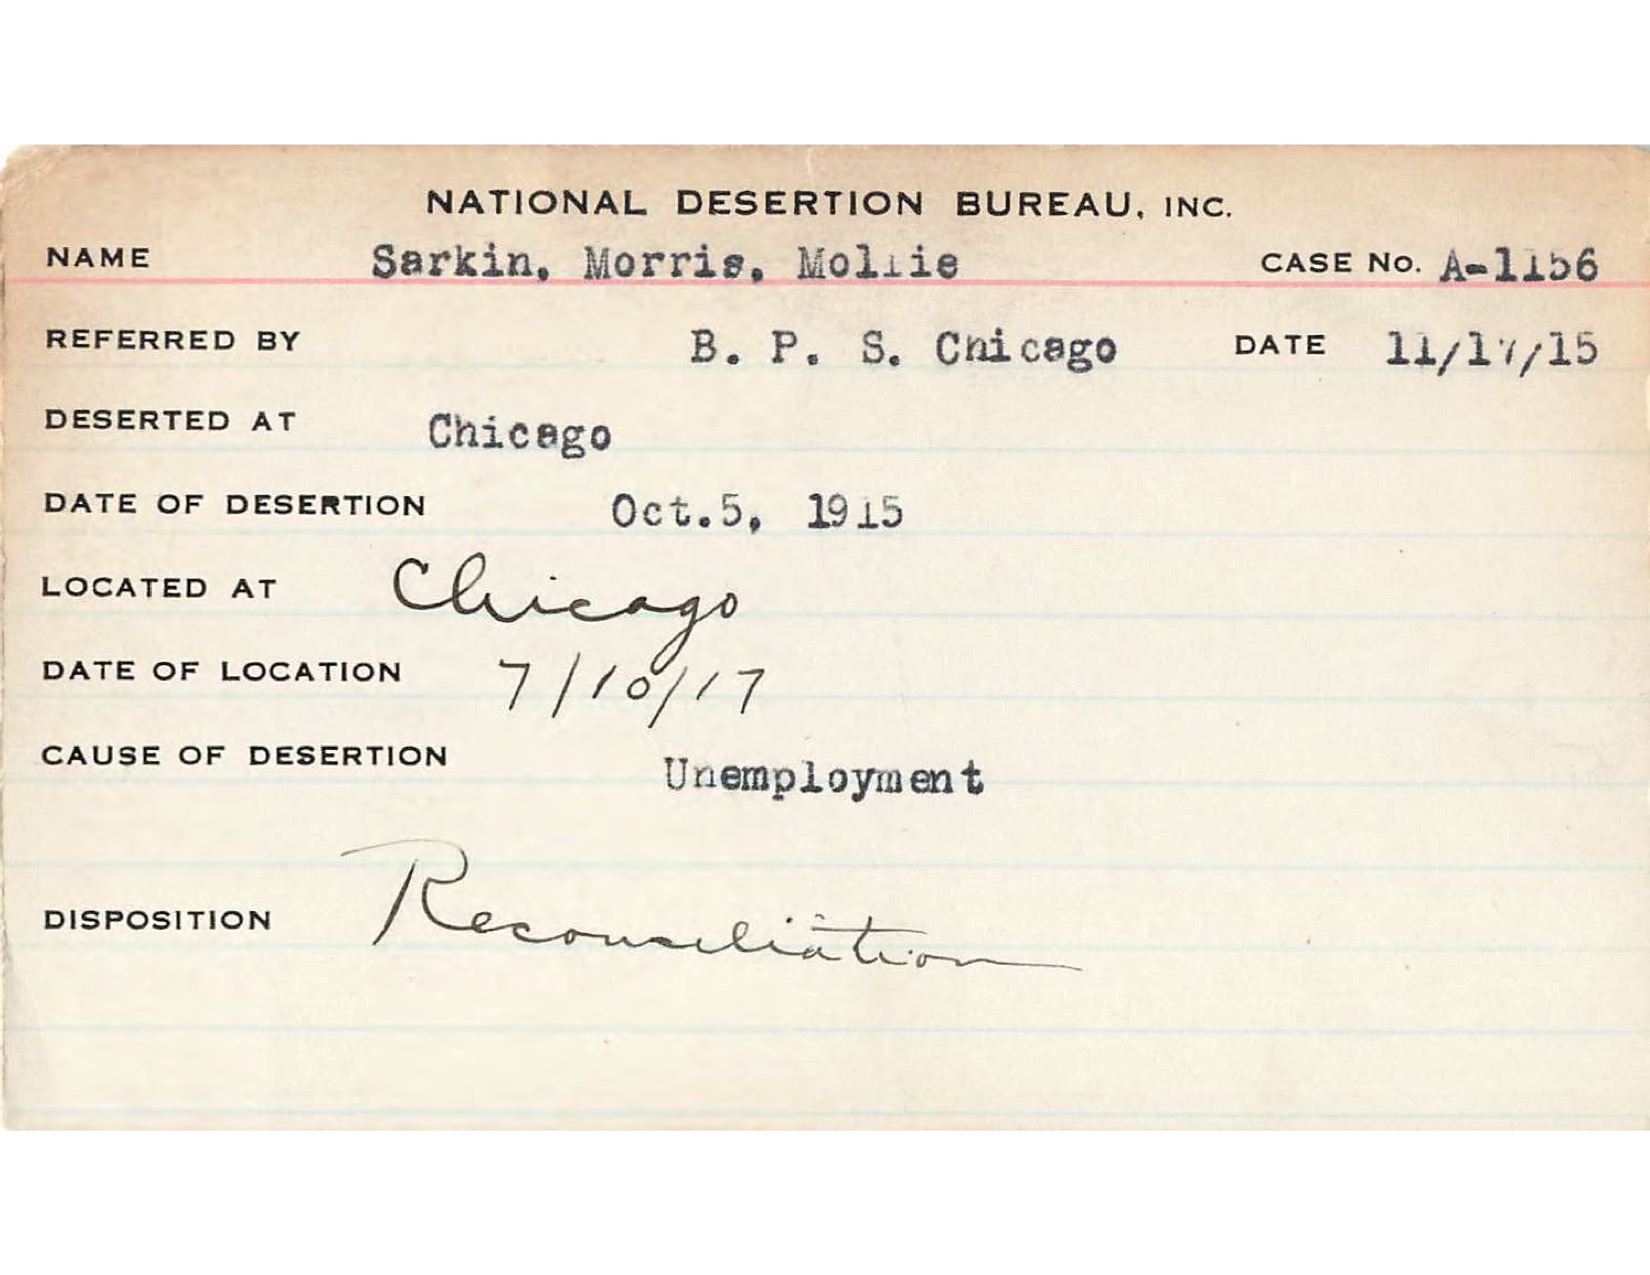 NATIONAL DESERTION BUREAU, INC.
NAME Sarkin, Morris, Mollie CASE NO. A-1156
REFERRED BY B. P. S. Chicago DATE 11/17/15
DESERTED AT Chicago
DATE OF DESERTION Oct.5, 1915
LOCATED AT Chicago
DATE OF LOCATION 7/10/17
CAUSE OF DESERTION Unemployment
DISPOSITION Reconciliation